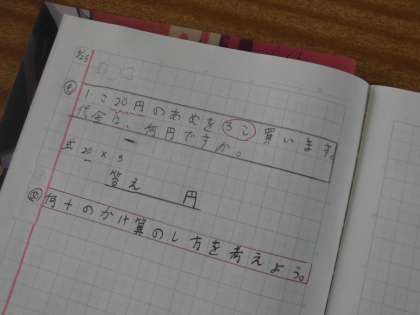 1こ20円のあめを3こ買います。
代金は、何円ですか。
式 20×3
答え 円
何十のかけ算のし方を考えよう。